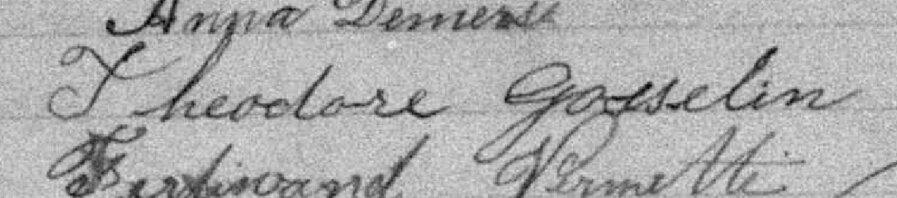 Anna Demers
Theodore Gosselin
Ferdinand Vermette